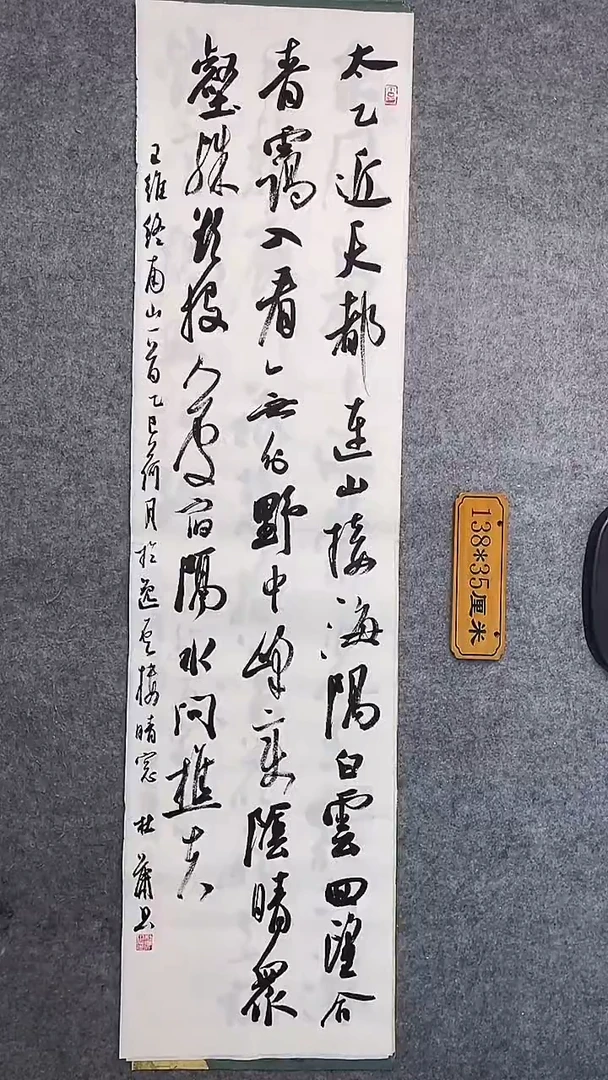 太乙近天都連山接海隅白雲回望合
青靄入看無分野中峰變陰晴眾
壑殊欲投人處宿隔水問樵夫
王維終南山一首乙巳荷月於逸雲樓晴窓 杜蕭書
138*35厘米